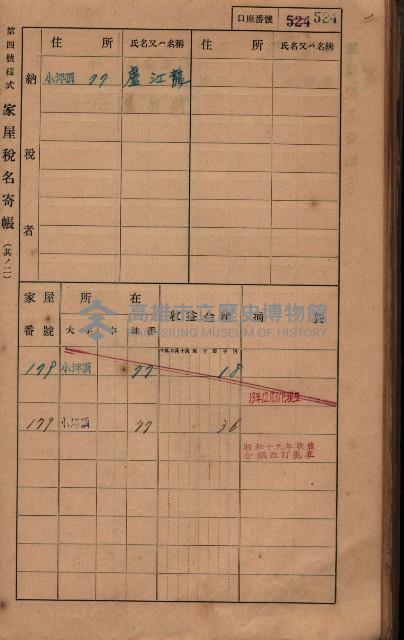 口座番號 524 524
第四號樣式 家屋稅名寄帳 (其ノ二)
住所 氏名又ハ名稱 住所 氏名又ハ名稱
納稅者
小坪頂 77 盧江龍
家屋番號 所在 收益金額 摘要
大字 字 地番
高雄市立歷史博物館
KAOHSIUNG MUSEUM OF HISTORY
179 小坪頂 77 18
13年12月31日現在
179 小坪頂 77 36
昭和十九年收益
金額改訂現在